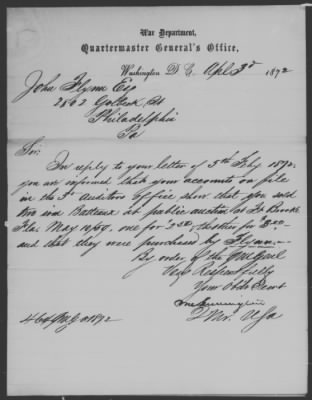 War Department,
Quartermaster General's Office,
Washington D.C. Apl 3d 1872
John Flynn Esq
2802 St
Philadelphia
Pa
Sir:
In reply to your letter of 5th Feby 1872
you are informed that your accounts on file
in the 3d Auditors office show that you sold
two at public auction at Ft Brooke
Fla. May 10/59, one for & the other for
and that they were purchased by Flynn.
By order of the
Very Respectfully
Your Obdt Servt